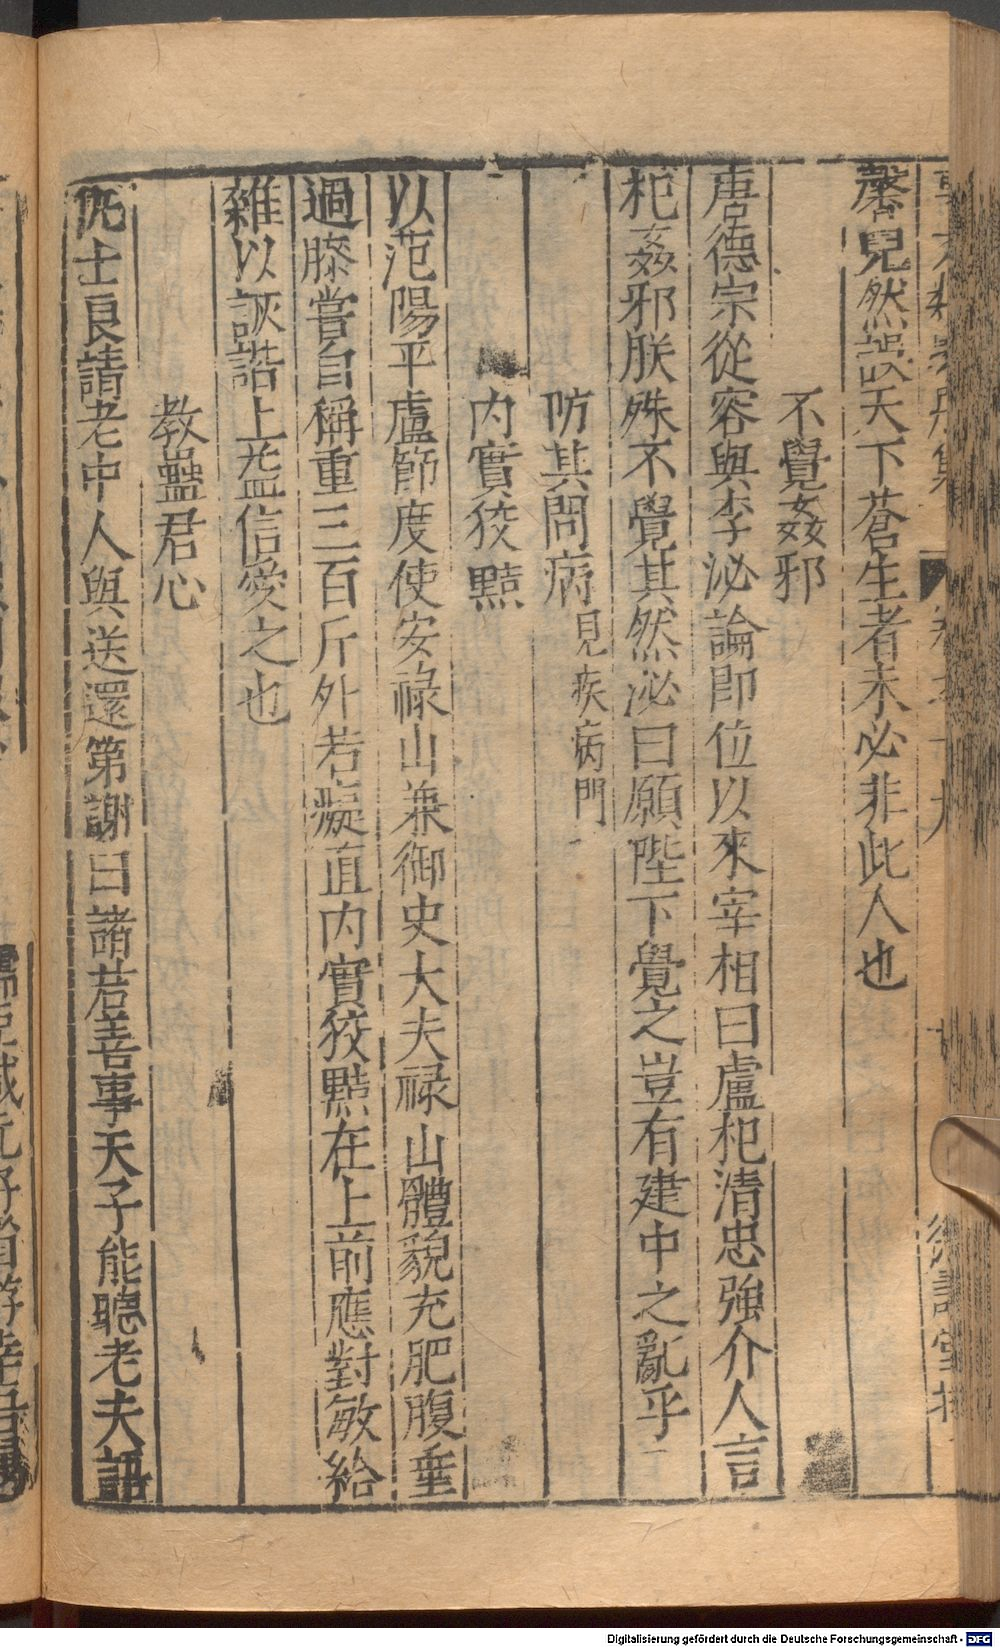 馨兒然誤天下蒼生者未必非此人也
不覺姦邪
唐德宗從容與李泌論即位以來宰相曰盧杞清忠強介人言
杞姦邪朕殊不覺其然泌曰願陛下覺之豈有建中之亂乎
防其問病見疾病門
内實狡黠
以范陽平盧節度使安祿山兼御史大夫祿山體貌充肥腹垂
過膝嘗自稱重三百斤外若癡直内實狡黠在上前應對敏給
雜以詼諧上益信愛之也
教蠱君心
仇士良請老中人與送還第謝曰諸君善事天子能聽老夫語
Digitalisierung gefördert durch die Deutsche Forschungsgemeinschaft - DFG